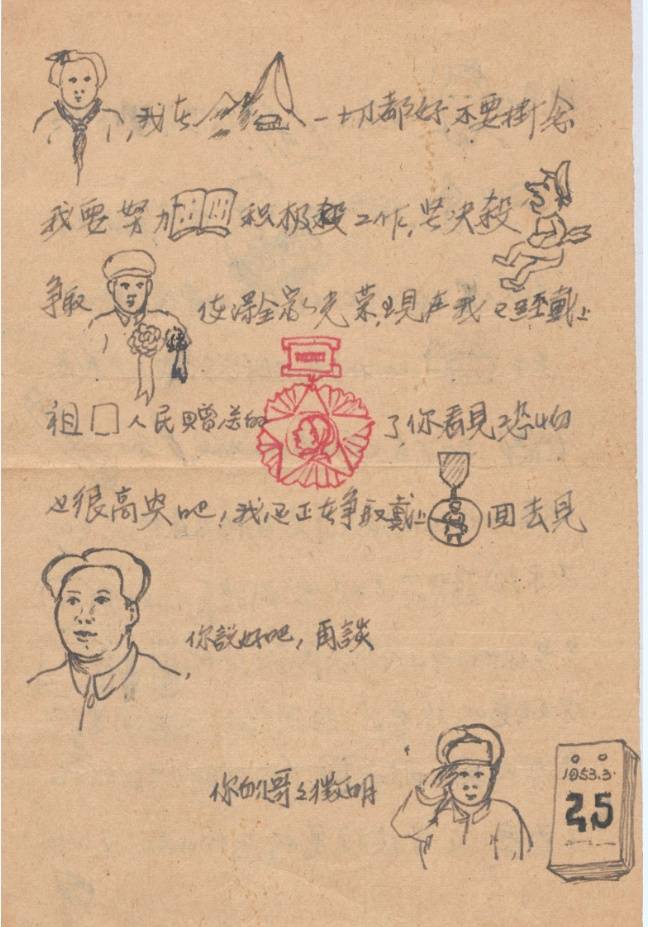 ,我在一切都好,不要掛念
我要努力积极工作,坚决殺
争取使得全家光荣,現在我已經戴上
祖囗人民贈送的了你看見了恐怕
也很高兴吧!我还正在争取戴上回去見
你說好吧,再談
你的哥々徵明
1953.3.
25